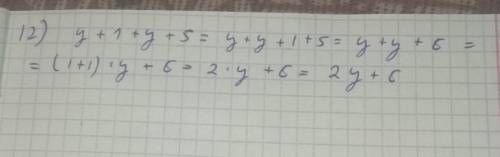 12) y + 1 + y + 5 = y + y + 1 + 5 = y + y + 6 =
= (1+1) · y + 6 = 2 · y + 6 = 2y + 6